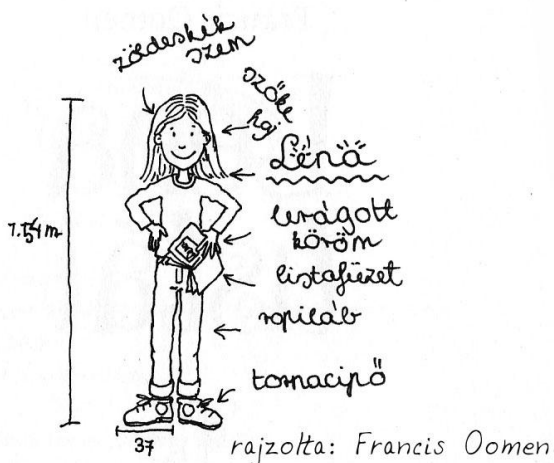 zöldeskék
szem
szőke
haj
Léna
lerágott
köröm
listafüzet
ropiláb
tornacipő
37
rajzolta: Francis Oomen